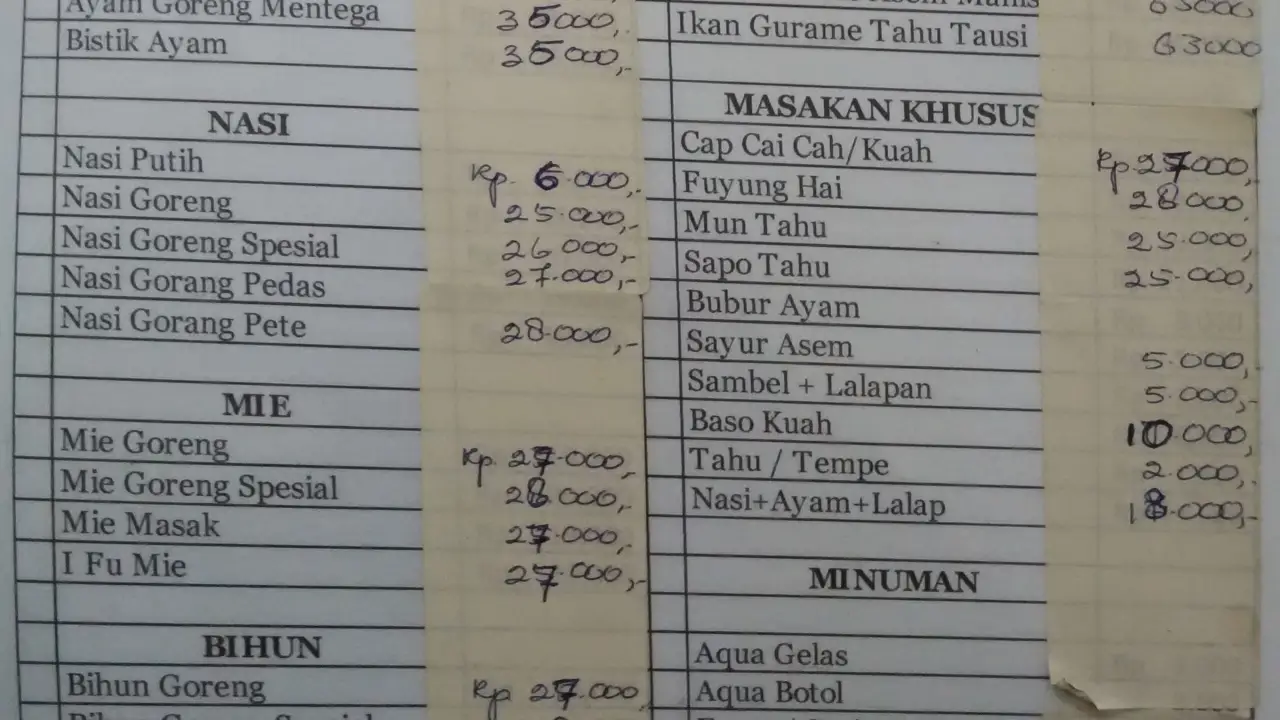 Ayam Goreng Mentega 35000,-
Bistik Ayam 35000,-
NASI
Nasi Putih Rp. 6.000,-
Nasi Goreng 25.000,-
Nasi Goreng Spesial 26000,-
Nasi Gorang Pedas 27.000,-
Nasi Gorang Pete 28.000,-
MIE
Mie Goreng Rp. 27.000,-
Mie Goreng Spesial 28000,-
Mie Masak 27.000,-
I Fu Mie 27.000,-
BIHUN
Bihun Goreng Rp 27.000
63000
Ikan Gurame Tahu Tausi 63000
MASAKAN KHUSUS
Cap Cai Cah/Kuah Rp.27000,-
Fuyung Hai 28000,
Mun Tahu 25.000,
Sapo Tahu 25.000,
Bubur Ayam
Sayur Asem 5.000,-
Sambel + Lalapan 5.000,-
Baso Kuah 10.000,
Tahu / Tempe 2.000,-
Nasi+Ayam+Lalap 18.000,-
MINUMAN
Aqua Gelas
Aqua Botol